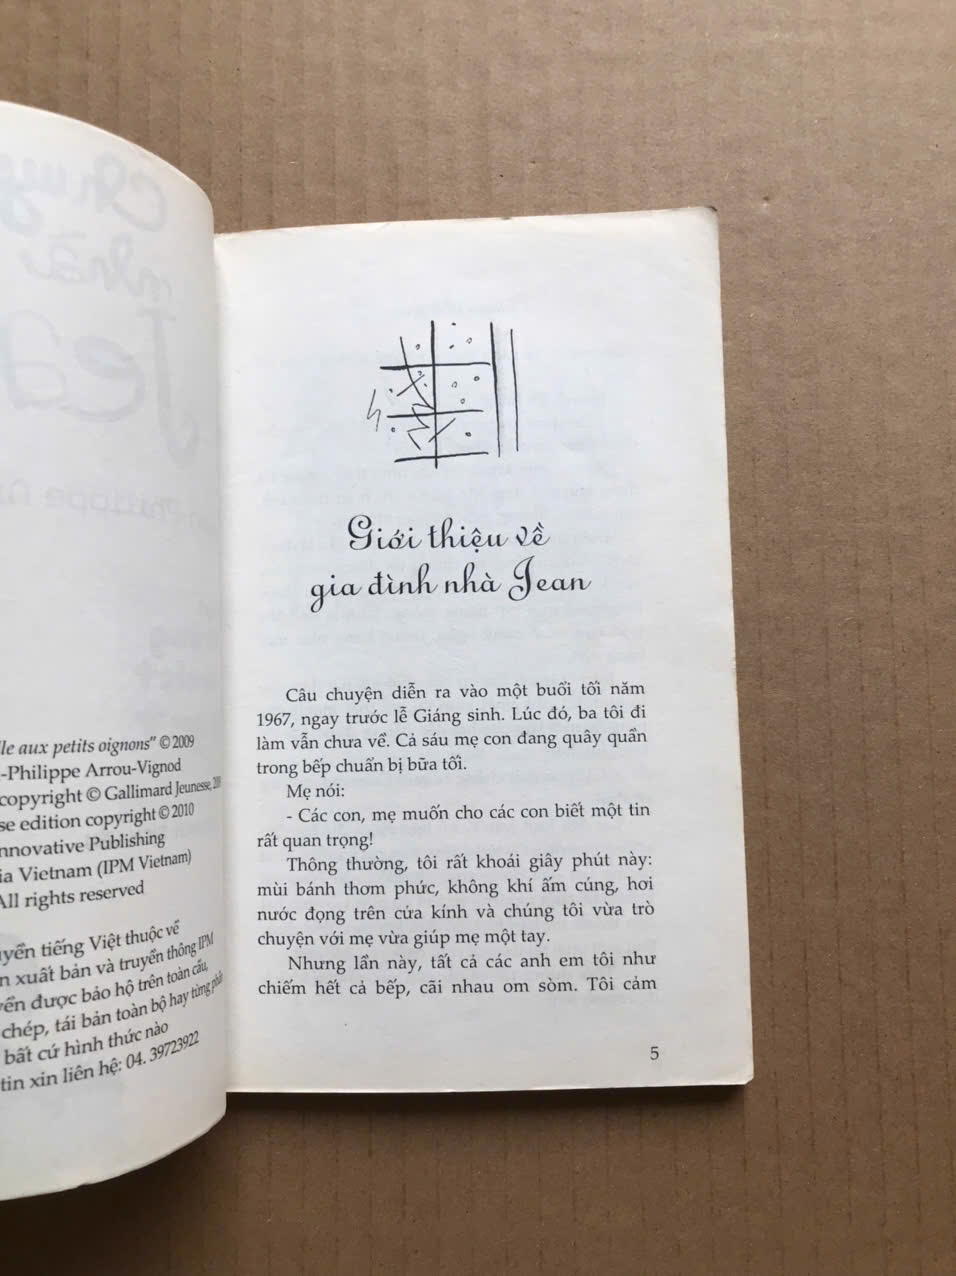 lle aux petits oignons" © 2009
-Philippe Arrou-Vignod
copyright © Gallimard Jeunesse,
se edition copyright © 2010
nnovative Publishing
ia Vietnam (IPM Vietnam)
All rights reserved
yền tiếng Việt thuộc về
n xuất bản và truyền thông IPM
yển được bảo hộ trên toàn cầu,
chép, tái bản toàn bộ hay từng phần
bất cứ hình thức nào
tin xin liên hệ: 04. 39723922
Giới thiệu về
gia đình nhà Jean
Câu chuyện diễn ra vào một buổi tối năm
1967, ngay trước lễ Giáng sinh. Lúc đó, ba tôi đi
làm vẫn chưa về. Cả sáu mẹ con đang quây quần
trong bếp chuẩn bị bữa tối.
Mẹ nói:
- Các con, mẹ muốn cho các con biết một tin
rất quan trọng!
Thông thường, tôi rất khoái giây phút này:
mùi bánh thơm phức, không khí ấm cúng, hơi
nước đọng trên cửa kính và chúng tôi vừa trò
chuyện với mẹ vừa giúp mẹ một tay.
Nhưng lần này, tất cả các anh em tôi như
chiếm hết cả bếp, cãi nhau om sòm. Tôi cảm
5